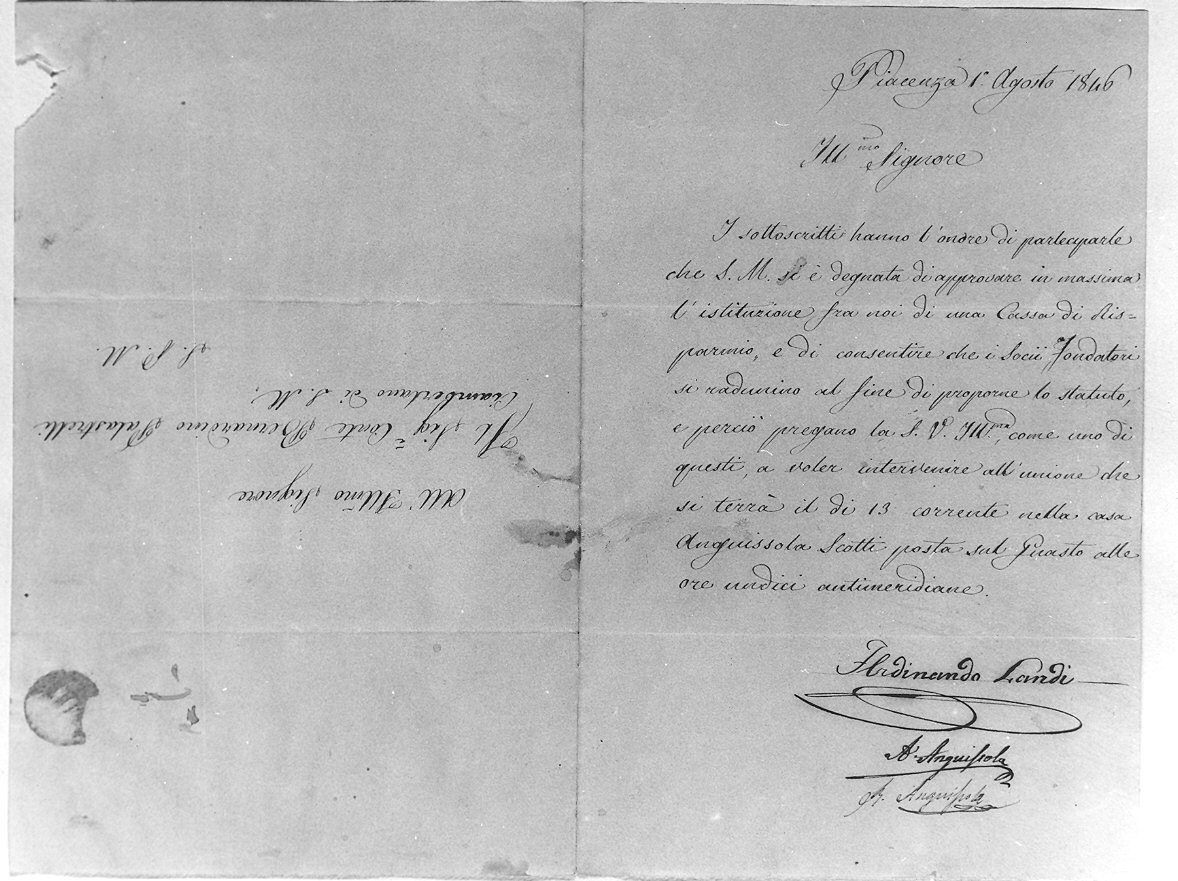 Piacenza 1.º Agosto 1846
Ill.mo Signore
I sottoscritti hanno l'onore di parteciparle
che S. M. si è degnata di approvare in massima
l'istituzione fra noi di una Cassa di Ris=
parmio, e di consentire che i Socii Fondatori
si radunino al fine di proporne lo statuto,
e perciò pregano la S. V. Ill.ma, come uno di
questi, a voler intervenire all'unione che
si terrà il di 13 corrente nella casa
Anguissola Scotti posta sul Guasto alle
ore undici antimeridiane.
Ferdinando Landi
A. Anguissola
Anguissola
All' Illmo Signore
Il Sig.e Conte Bernardino Palastrelli
Ciamberlano di S. M.
S. P. M.